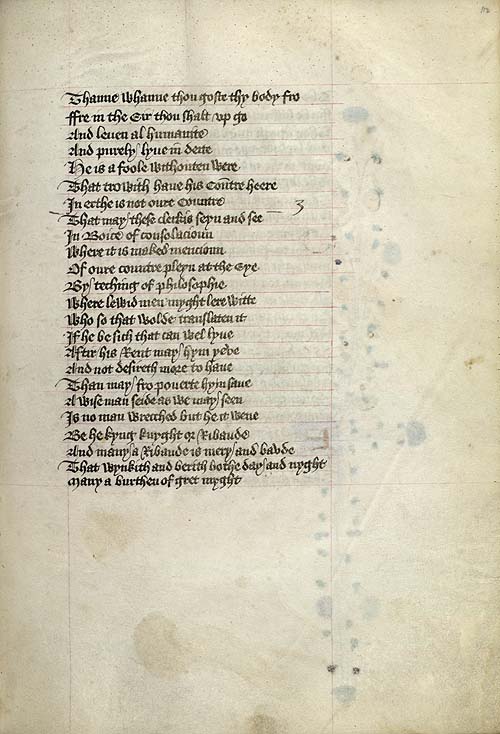 Thanne whanne thou goste thy body fro
ffre in the Eir thou shalt vp go
And leuen al humanite
And purely lyue in deite
He is a foole withouten were
That trowith haue his Contre heere
In erthe is not oure Contre
That may these clerkis seyn and see 3
In Boice of consolacioun
Where it is maked mencioun
Of oure countre pleyn at the Eye
By teching of philosophie
Where lewid men myght lere witte
Who so that wolde translaten it
If he be sich that can wel lyue
Aftur his Rent may hym yeve
And not desireth more to haue
Than may fro pouerte hym saue
A wise man seide as we may seen
Is no man wrecched but he it wene
Be he kyng knyght or Ribaude
And many a Ribaude is mery and baude
That wynkith and berith bothe day and nyght
Many a burthen of gret myght